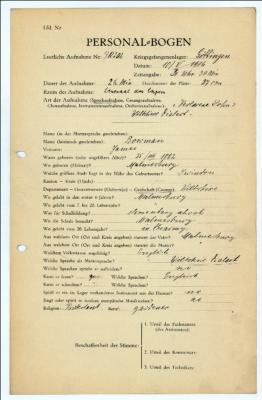 Lfd. Nr.
PERSONAL-BOGEN
Lautliche Aufnahme Nr.:
Kriegsgefangenenlager: Göttingen
Datum:
Zeitangabe:
Dauer der Aufnahme: 2½ Min
Durchmesser der Platte: 27 cm
Raum der Aufnahme: im Lager
Art der Aufnahme (Sprechaufnahme, Gesangsaufnahme,
Choraufnahme, Instrumentenaufnahme, Orchesteraufnahme):
Wiltshire Dialect.
Name (in der Muttersprache geschrieben):
Name (lateinisch geschrieben): Bowman
Vorname: James
Wann geboren (oder ungefähres Alter)?
Wo geboren (Heimat)? Malmesbury
Welche größere Stadt liegt in der Nähe des Geburtsortes? Swindon
Kanton — Kreis (Ujedz):
Departement — Gouvernement (Gubernija) — Grafschaft (County): Wiltshire
Wo gelebt in den ersten 6 Jahren? Malmesbury
Wo gelebt vom 7. bis 20. Lebensjahr?
Was für Schulbildung? Elementary school
Wo die Schule besucht? Malmesbury
Wo gelebt vom 20. Lebensjahr?
Aus welchem Ort (Ort und Kreis angeben) stammt der Vater? Malmesbury
Aus welchem Ort (Ort und Kreis angeben) stammt die Mutter?
Welchem Volksstamm angehörig? English
Welche Sprache als Muttersprache? Wiltshire Dialect
Welche Sprachen spricht er außerdem?
Kann er lesen? yes Welche Sprachen? English
Kann er schreiben? Welche Sprachen?
Spielt er ein im Lager vorhandenes Instrument aus der Heimat? no
Singt oder spielt er modern europäische Musikweisen? no
Religion: Beruf: gardener
Beschaffenheit der Stimme:
1. Urteil des Fachmannes
(des Assistenten):
2. Urteil des Kommissars:
3. Urteil des Technikers: